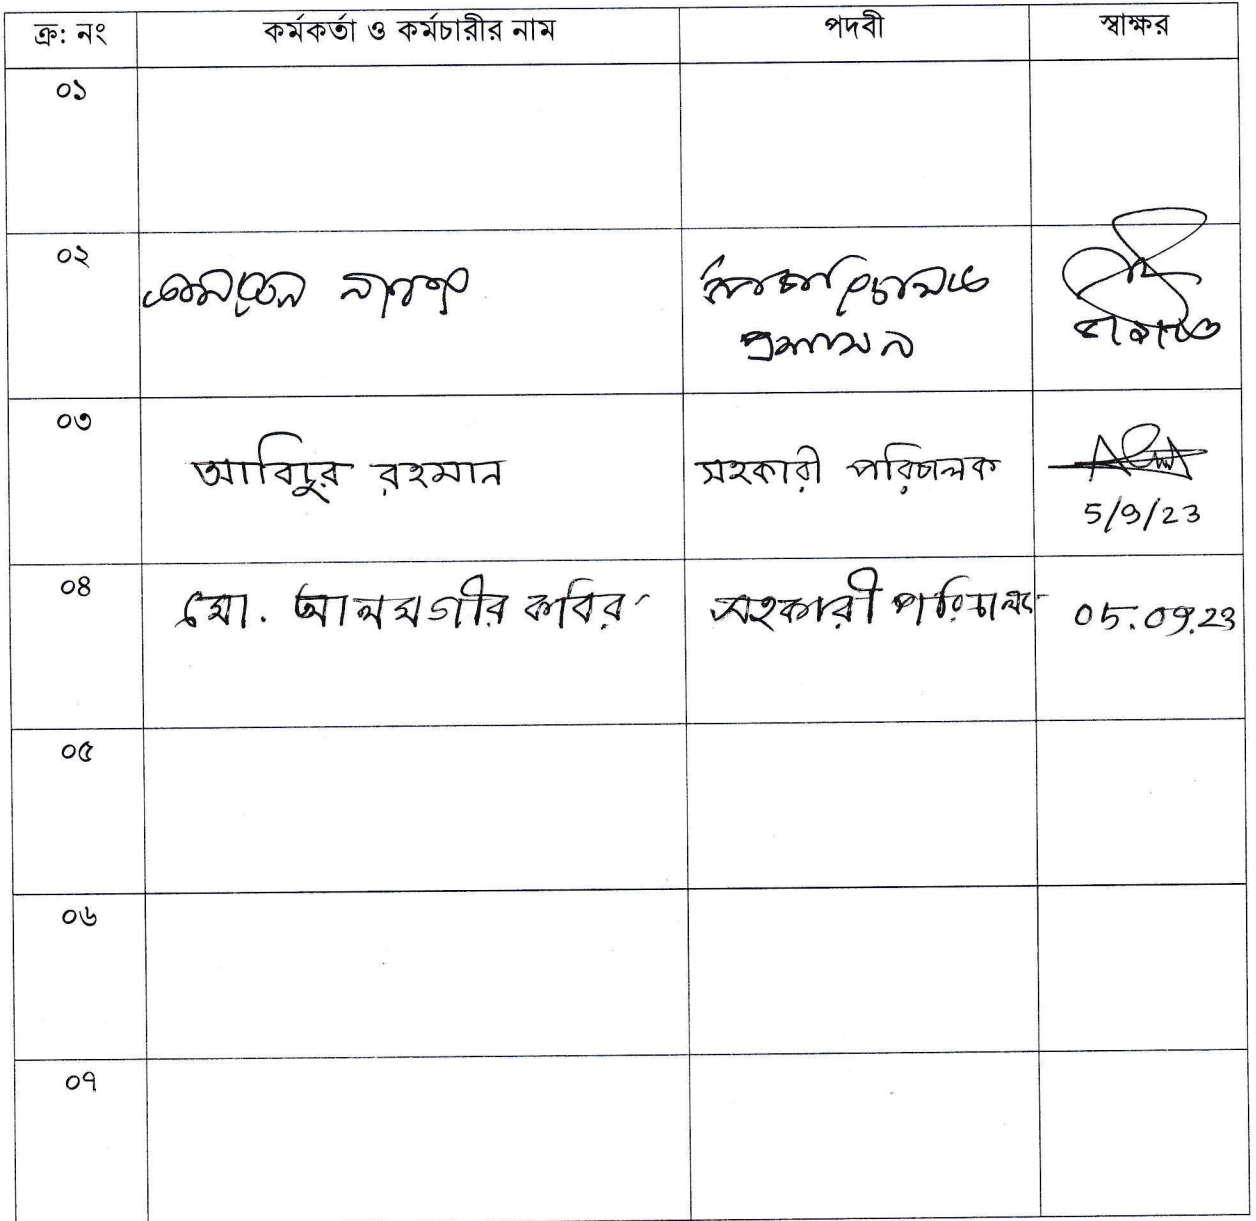 ক্র: নং কর্মকর্তা ও কর্মচারীর নাম পদবী স্বাক্ষর
০১
০২
প্রশাসন
০৩ আবিদুর রহমান সহকারী পরিচালক
5/9/23
০৪ মো. আলমগীর কবির সহকারী পরিচালক 05.09.23
০৫
০৬
০৭